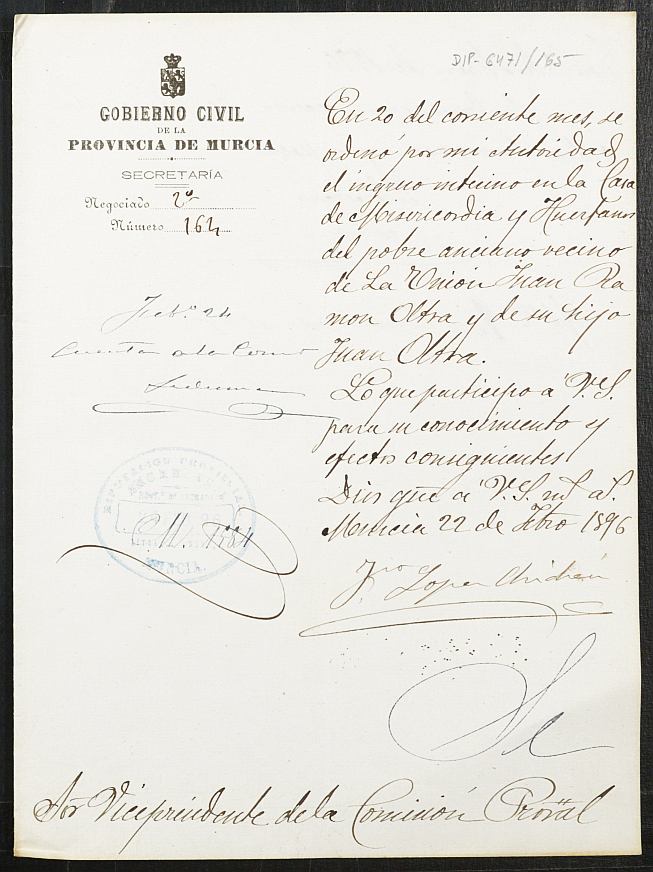 DIP-6471/165
GOBIERNO CIVIL
DE LA
PROVINCIA DE MURCIA
SECRETARÍA
Negociado 2º
Número 164
En 20 del corriente mes, se
ordenó por mi Autoridad
el ingreso interino en la Casa
de Misericordia y Huerfanos
del pobre anciano vecino
de La Unión Juan Ra
mon Oltra y de su hijo
Juan Oltra.
Lo que participo á V.S.
para su conocimiento y
efectos consiguientes.
Dios gue á V.S. ms as.
Murcia 22 de Febro 1896
Feb.º 24
Cuenta a la Comon
Ledesma
DIPUTACION PROVINCIAL
MURCIA
1554
Jno Lopez
Sor Vicepresidente de la Comisión Proval